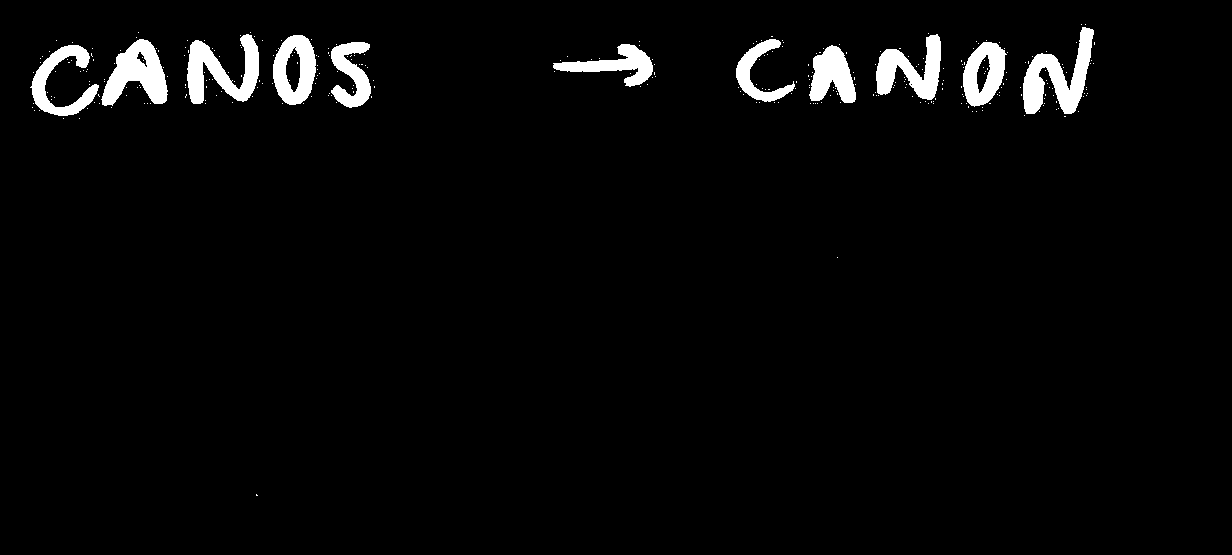 CANOS → CANON